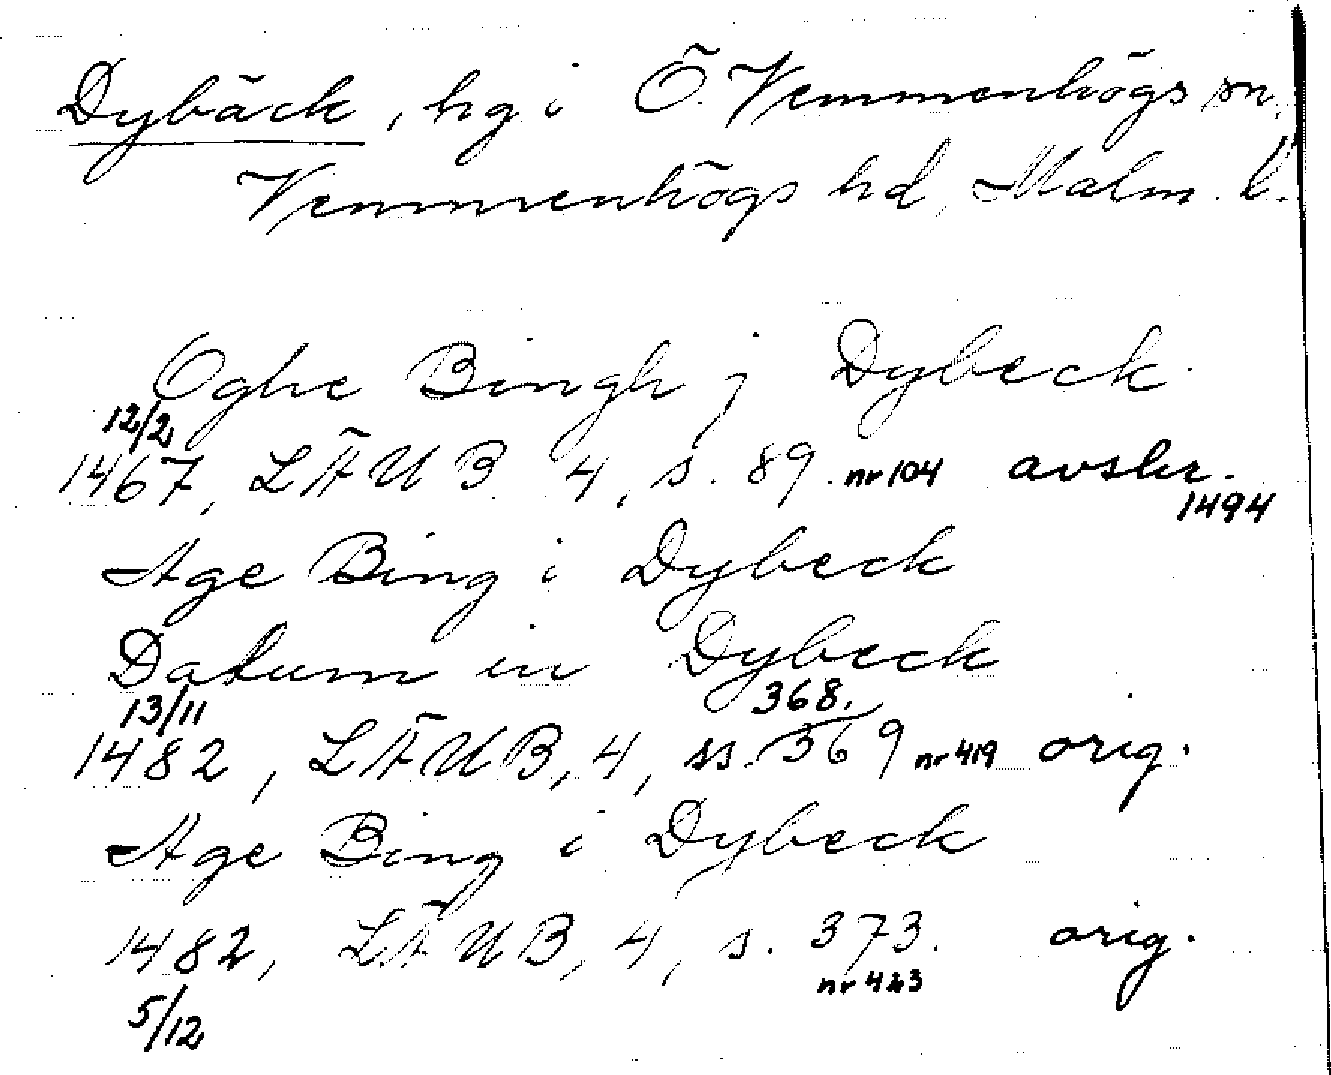 Dybäck, hg i Ö. Vemmenhögs sn,
Vemmenhögs hd, Malm. l.
Oghe Bingh j Dybeck
12/2
1467, LÄUB 4, s. 89. nr 104 avskr.
1494
Age Bing i Dybeck
Datum in Dybeck
13/11 368.
1482, LÄUB, 4, ss. 369 nr 419 orig.
Age Bing i Dybeck
1482, LÄUB, 4, s. 373. orig.
5/12 nr 423